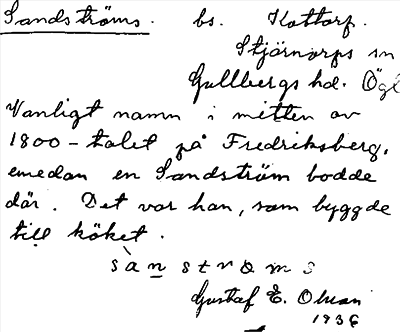 Sandströms. bs. Kottorp.
Stjärnorps sn
Gullbergs hd. Ögl
Vanligt namn i mitten av
1800-talet på Fredriksberg,
emedan en Sandström bodde
där. Det var han, som byggde
till köket.
sànströms
Gustaf E. Olsson
1936